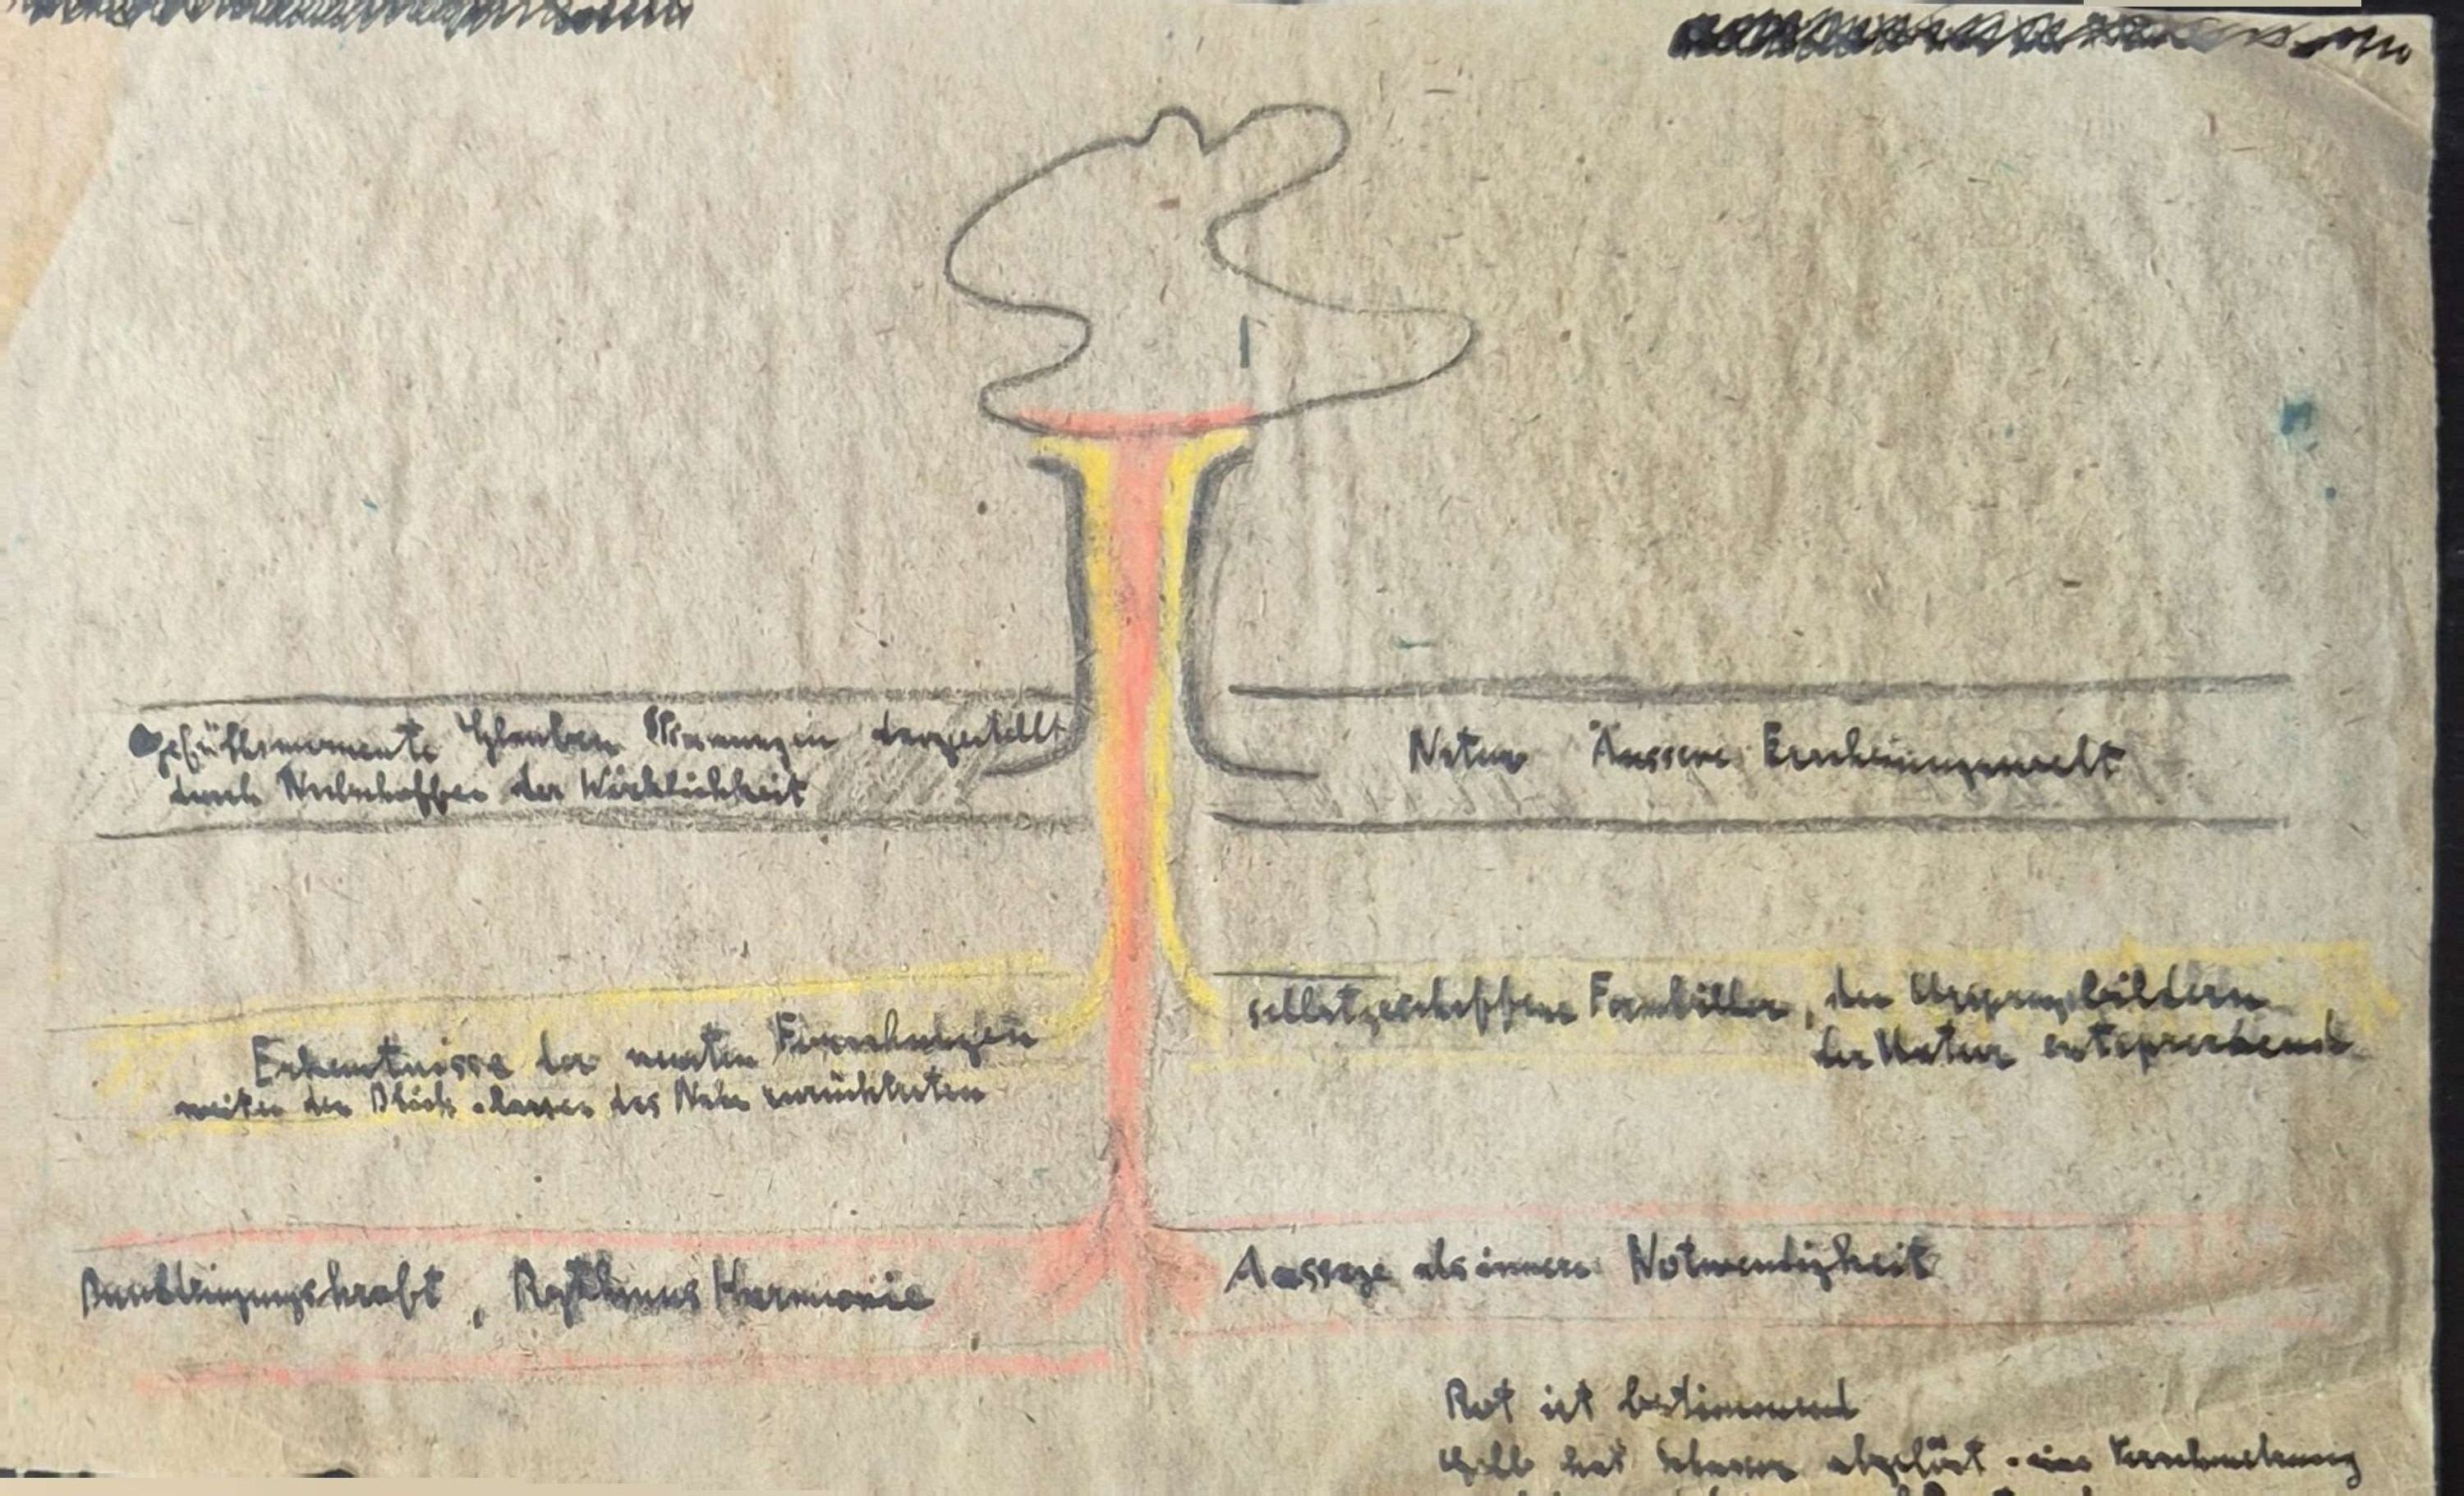 Gefühlsmomente Glauben dargestellt
durch Neuschaffen der Wirklichkeit
Natur Äussere Erscheinungswelt
Erkentnisse der neusten Forschungen
des zurücktreten
selbstgeschaffene Formbilder, den Ursprungsbildern
der Natur entsprechend
Rythmus Harmonie
Aussage als innere Notwendigkeit
Rot ist bestimmend
Gelb hat Schwarz abgelöst - eine Verschmelzung